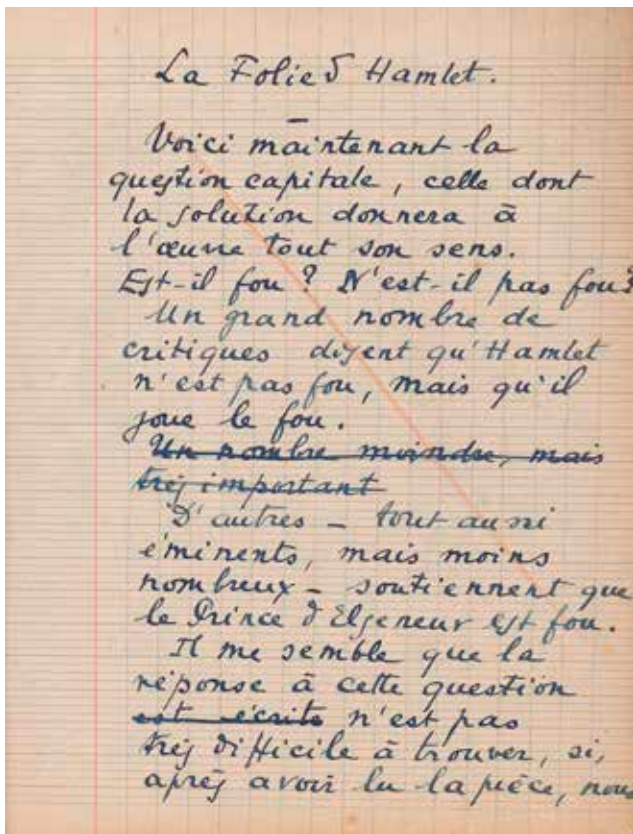 La Folie d'Hamlet.
Voici maintenant la
question capitale, celle dont
la solution donnera à
l'œuvre tout son sens.
Est-il fou ? N'est-il pas fou ?
Un grand nombre de
critiques disent qu'Hamlet
n'est pas fou, mais qu'il
joue le fou.
Un nombre moindre, mais
très important
D'autres – tout aussi
éminents, mais moins
nombreux – soutiennent que
le Prince d'Elseneur est fou.
Il me semble que la
réponse à cette question
est écrite n'est pas
très difficile à trouver, si,
après avoir lu la pièce, nous